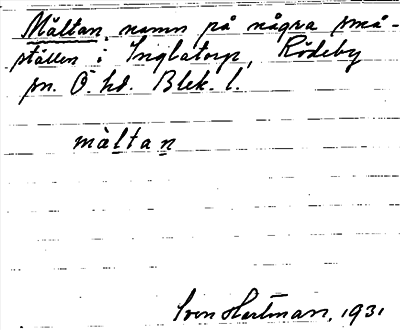 Mältan, namn på några små-
ställen i Inglatorp, Rödeby
sn. Ö. hd. Blek. l.
mältan
Sven Hartman, 1931